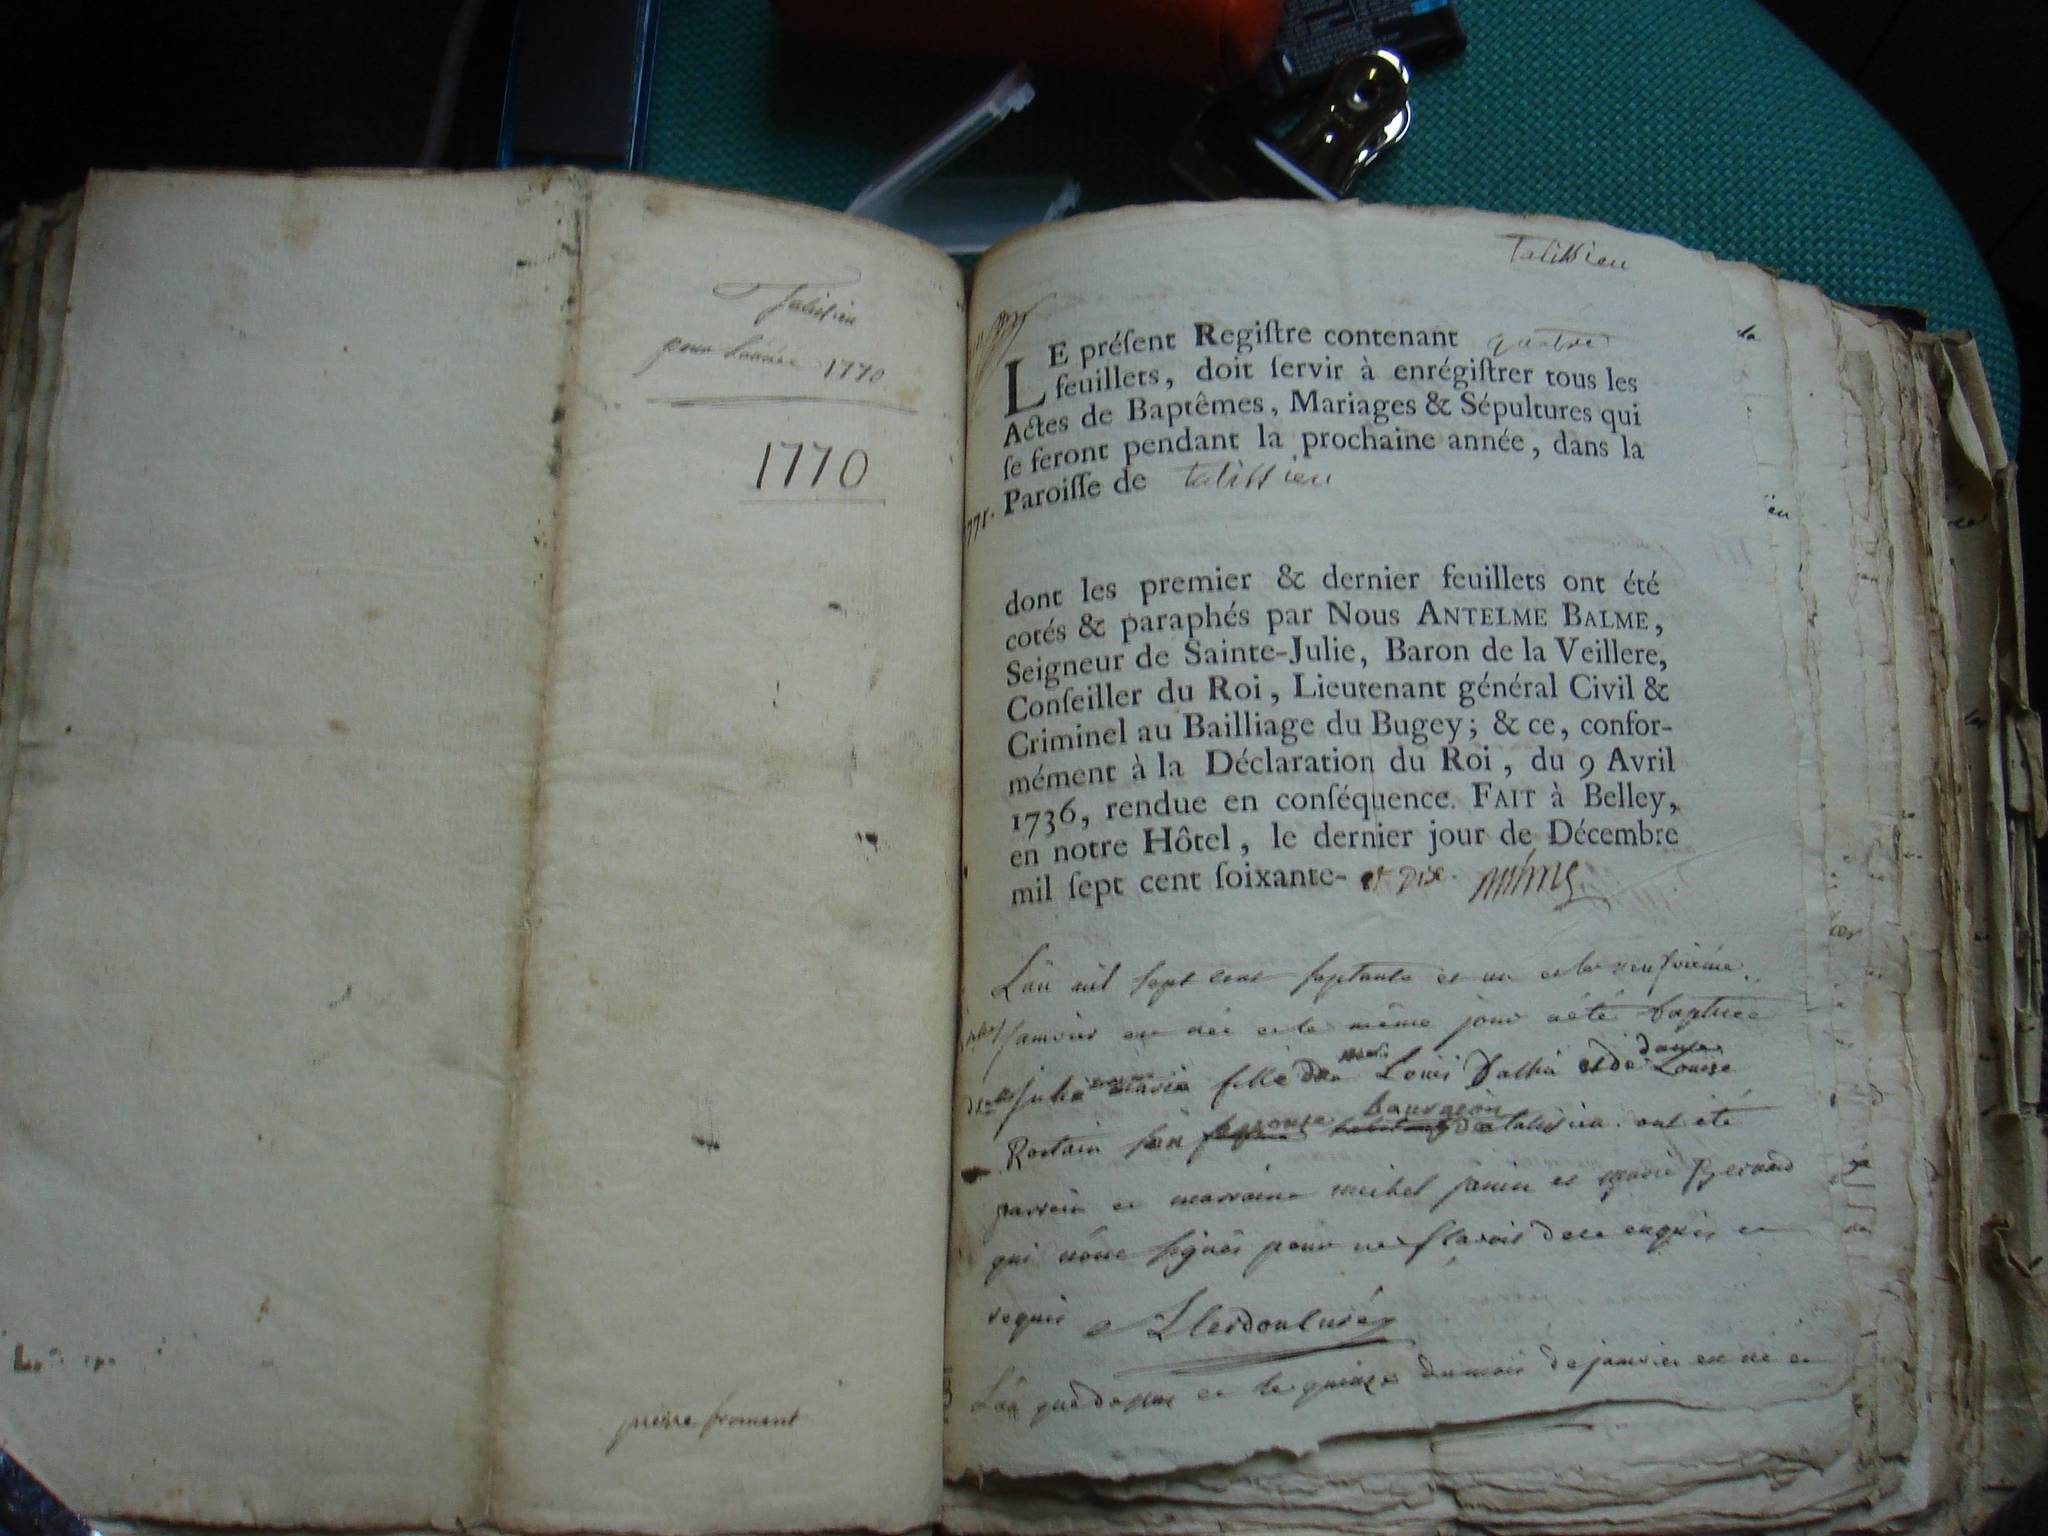 Talissieu
pour l'année 1770
1770
pierre froment
Talissieu
LE préſent Regiſtre contenant quatre
feuillets, doit ſervir à enrégiſtrer tous les
Actes de Baptêmes, Mariages & Sépultures qui
ſe feront pendant la prochaine année, dans la
Paroiſſe de talissieu
dont les premier & dernier feuillets ont été
cotés & paraphés par Nous ANTELME BALME,
Seigneur de Sainte-Julie, Baron de la Veillere,
Conſeiller du Roi, Lieutenant général Civil &
Criminel au Bailliage du Bugey; & ce, confor-
mément à la Déclaration du Roi, du 9 Avril
1736, rendue en conſéquence. FAIT à Belley,
en notre Hôtel, le dernier jour de Décembre
mil ſept cent ſoixante- et dix
L'an mil sept cent septante et un et le
janvier est née et le même jour a été baptisée
marie fille de Louis et de dame Louise
Rostain son epouse bourgeois de talissieu ont été
parrein et marraine michel janin et marie
qui n'ont signés pour ne sçavoir de ce enquis et
requis
L'an que dessus et le quinze du mois de janvier est né et